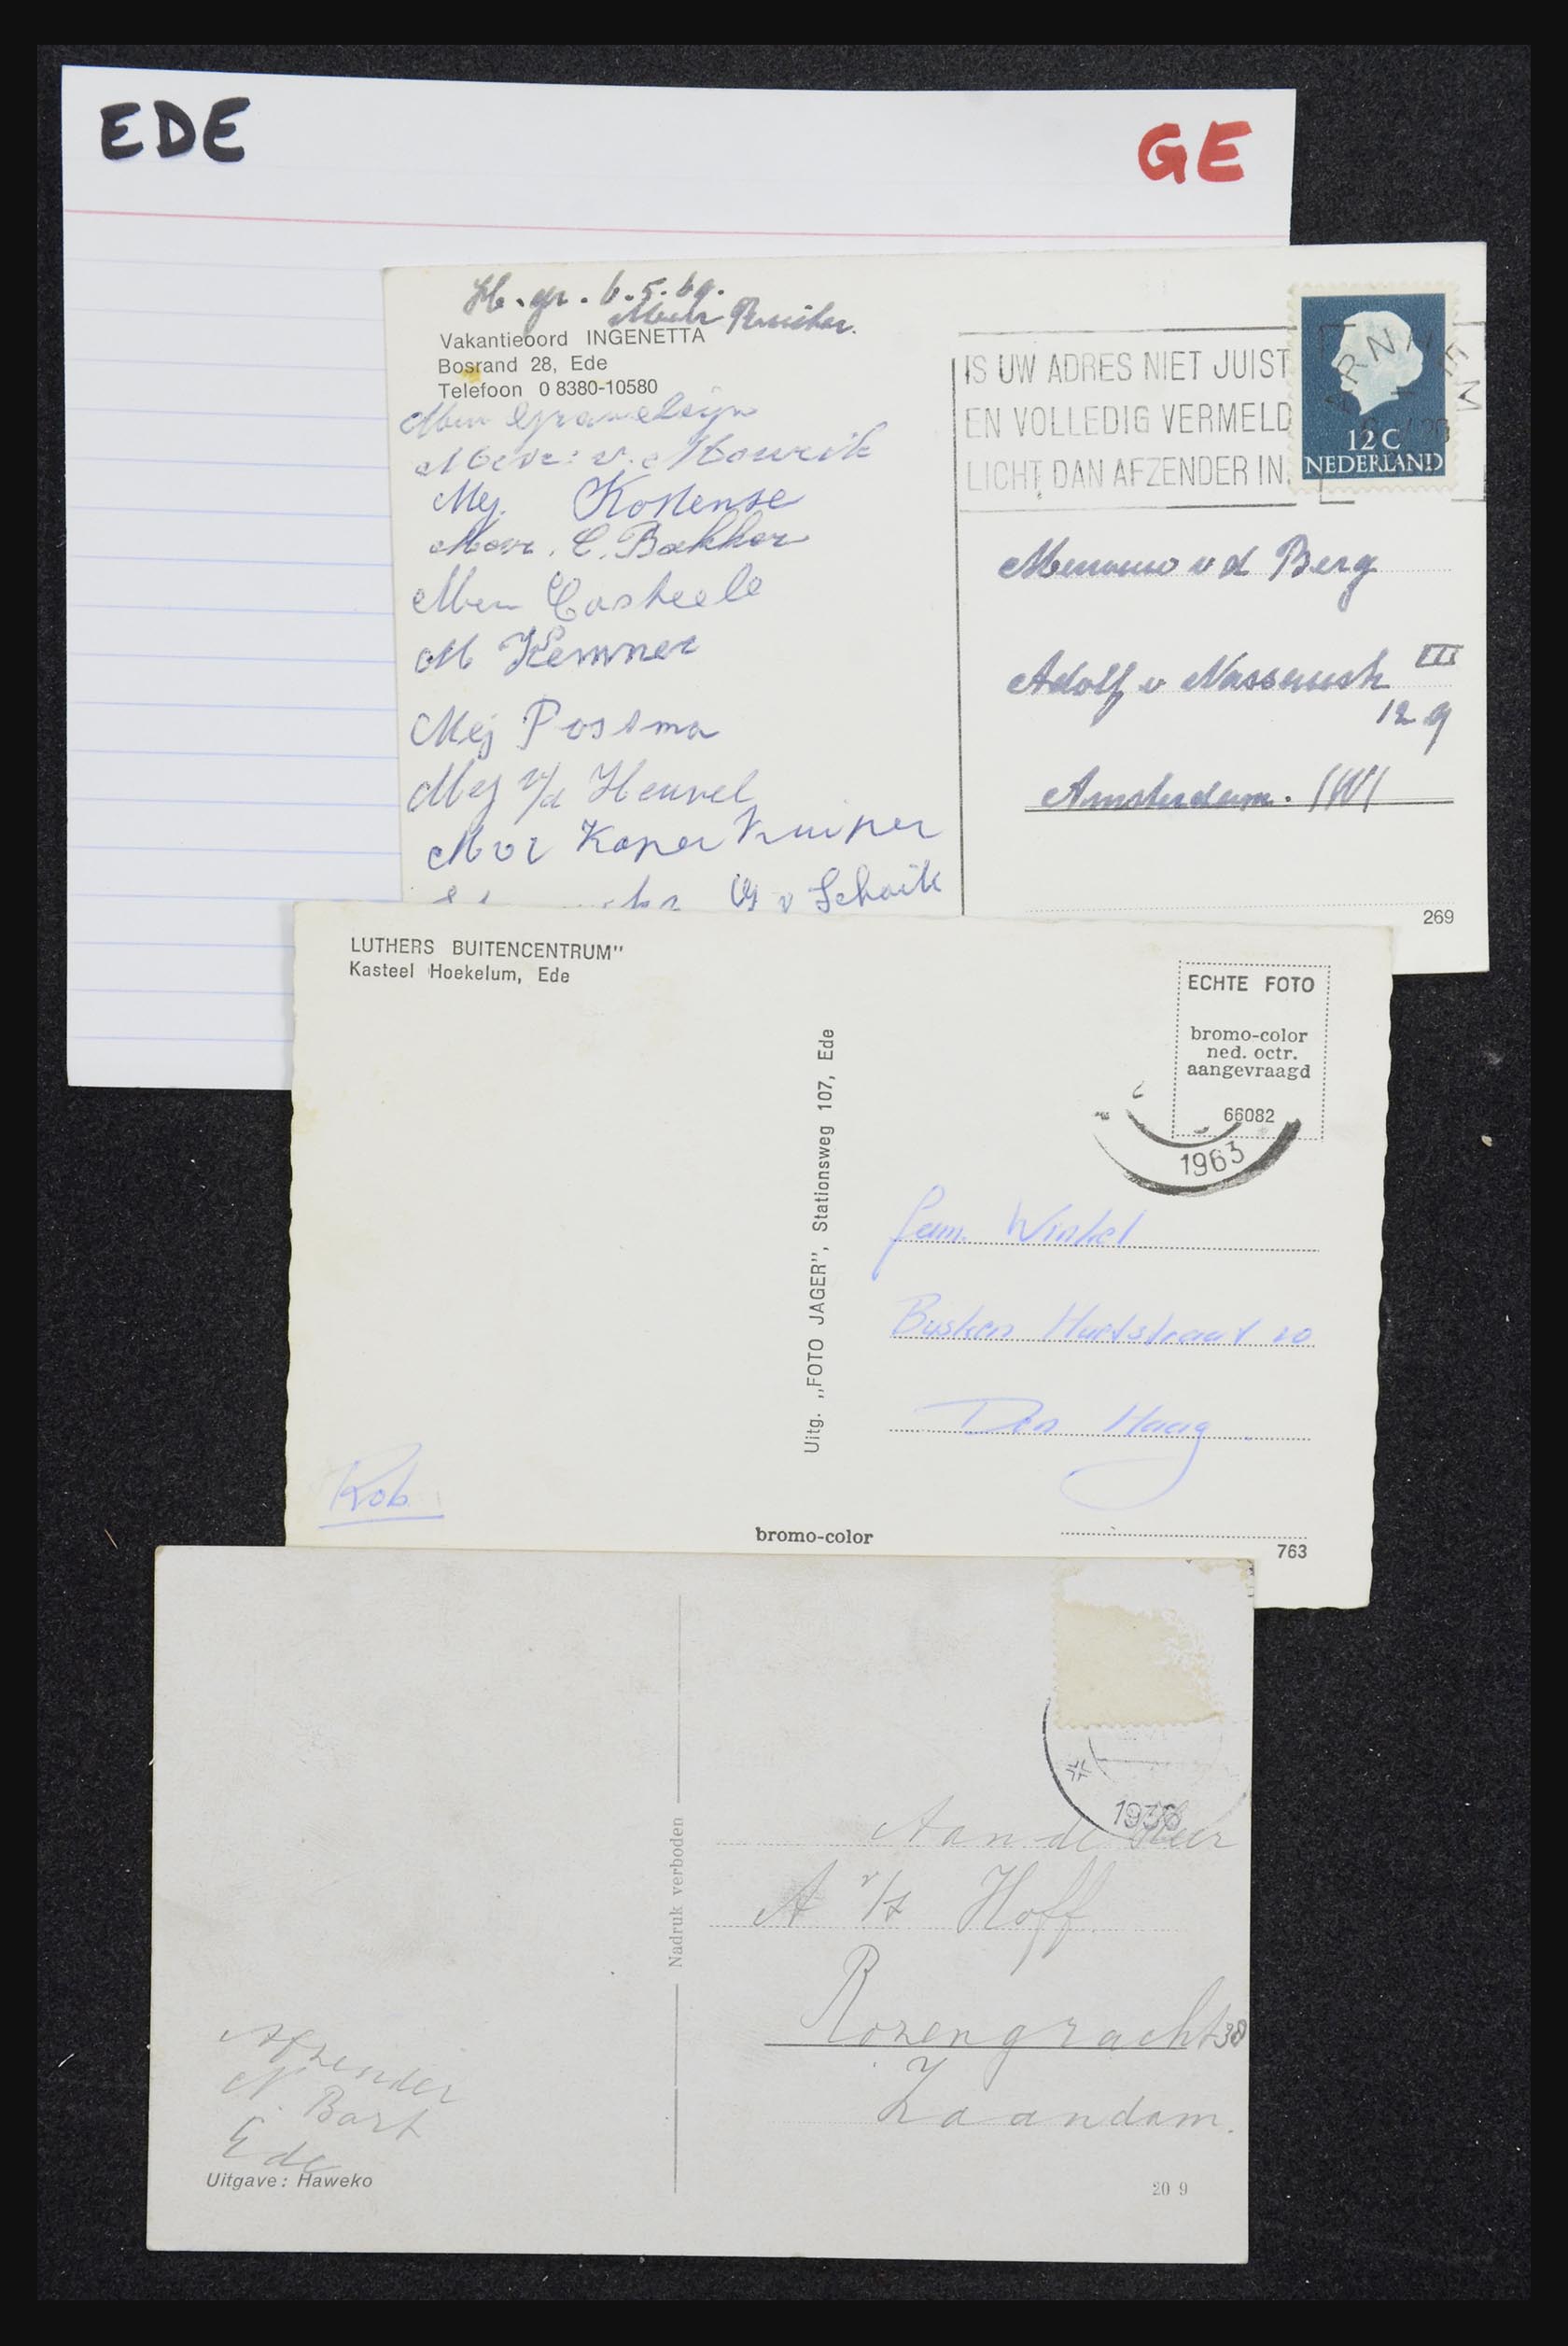 EDE
GE
H. gr. 6.5.69.
Vakantieoord INGENETTA
Bosrand 28, Ede
Telefoon 0 8380-10580
Mej. Kostense
Mevr. C. Bakker
Casteele
M
Mej Postma
Mej v/d Heuvel
Kuiper
v Schaik
IS UW ADRES NIET JUIST
EN VOLLEDIG VERMELD
LICHT DAN AFZENDER IN.
ARNHEM
12 C
NEDERLAND
v d Berg
Adolf v Nassaustr III
12 g
Amsterdam. (W)
269
LUTHERS BUITENCENTRUM"
Kasteel Hoekelum, Ede
Uitg. „FOTO JAGER", Stationsweg 107, Ede
ECHTE FOTO
bromo-color
ned. octr.
aangevraagd
66082
1963
fam. Winkel
Busken Huetstraat 20
Den Haag.
Rob
bromo-color
763
Nadruk verboden
Aan de Heer
A v/t Hoff.
Rozengracht 38
Zaandam.
Afzender
N. Bart
Ede
Uitgave: Haweko
20 9